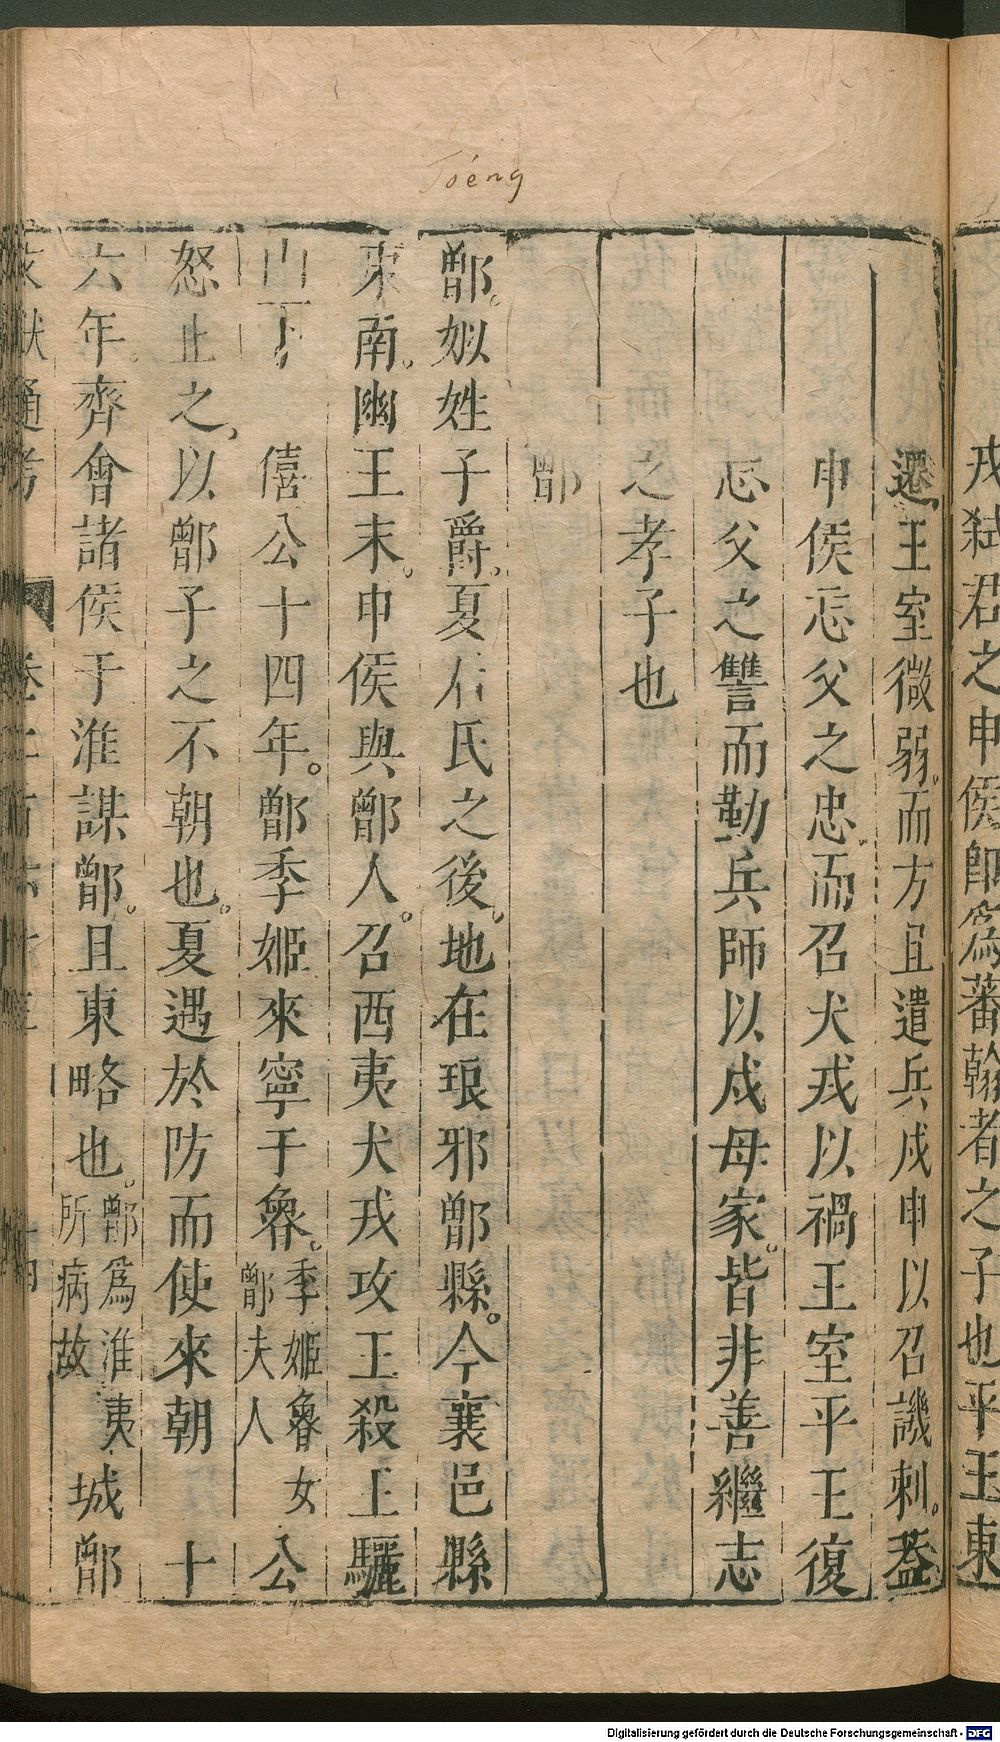 Tséng
戎弑君之申侯卽爲蕃翰者之子也平王東
遷王室微弱而方且遣兵戍申以召譏刺葢
申侯忘父之忠而召犬戎以禍王室平王復
忘父之讐而勤兵師以戍母家皆非善繼志
之孝子也
鄫
鄫姒姓子爵夏后氏之後地在琅邪鄫縣今襄邑縣
東南幽王末申侯與鄫人召西夷犬戎攻王殺王驪
山下 僖公十四年鄫季姬來寧于魯季姬魯女鄫夫人公
怒止之以鄫子之不朝也夏遇於防而使來朝 十
六年齊會諸侯于淮謀鄫且東略也鄫爲淮夷所病故城鄫
文獻通考
Digitalisierung gefördert durch die Deutsche Forschungsgemeinschaft - DFG